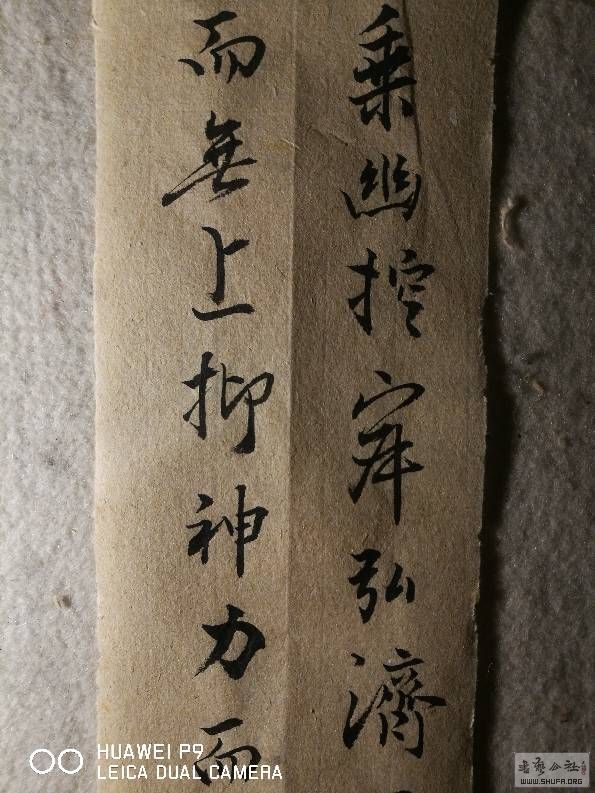 乗幽控寂弘濟
而無上抑神力而
HUAWEI P9
LEICA DUAL CAMERA
书法公社
WWW.SHUFA.ORG